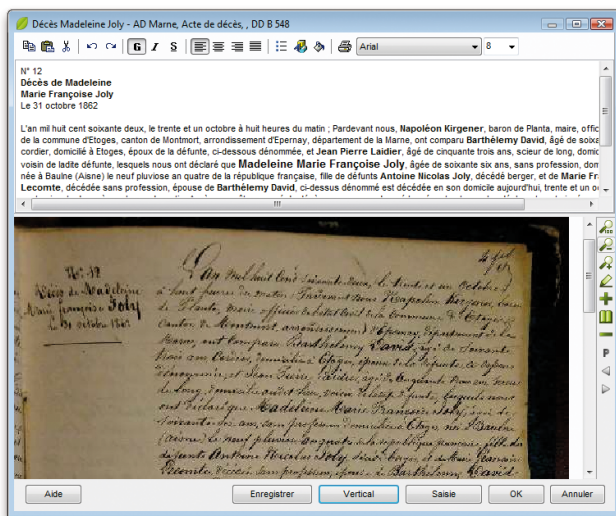 Décès Madeleine Joly - AD Marne, Acte de décès, , DD B 548
G I S Arial 8
N° 12
Décès de Madeleine
Marie Françoise Joly
Le 31 octobre 1862
L'an mil huit cent soixante deux, le trente et un octobre à huit heures du matin ; Pardevant nous, Napoléon Kirgener, baron de Planta, maire, offic
de la commune d'Etoges, canton de Montmort, arrondissement d'Epernay, département de la Marne, ont comparu Barthèlemy David, âgé de soixa
cordier, domicilié à Etoges, époux de la défunte, ci-dessous dénommée, et Jean Pierre Laidier, âgé de cinquante trois ans, scieur de long, domic
voisin de ladite défunte, lesquels nous ont déclaré que Madeleine Marie Françoise Joly, âgée de soixante six ans, sans profession, dom
née à Baulne (Aisne) le neuf pluviose an quatre de la république française, fille de défunts Antoine Nicolas Joly, décédé berger, et de Marie Fr
Lecomte, décédée sans profession, épouse de Barthèlemy David, ci-dessus dénommé est décédée en son domicile aujourd'hui, trente et un oc
N°. 12
Décès de Madeleine
Marie françoise Joly
Le 31 octobre 1862
L'an mil huit cent soixante deux, le trente et un octobre
à huit heures du matin Pardevant nous Napoléon Kirgener, baron
de Planta, maire officier de la Commune d'Etoges
Canton de Montmort, arrondissement d'Epernay, département de la
Marne, ont comparu Barthelemy David, agé de soixante
trois ans Cordier, domicilié à Etoges, époux de la défunte, ci dessous
dénommée et Jean Pierre Laidier, agé de Cinquante trois ans scieur
de long, lesquels nous
ont déclaré que Madeleine Marie Françoise Joly, agée de
soixante six ans, sans profession domiciliée à Etoges, née à Baulne
(aisne) le neuf pluviose an quatre de la république française, fille de
défunts Antoine Nicolas Joly
Lecomte, décédée sans profession, épouse de Barthelemy David
P
Aide Enregistrer Vertical Saisie OK Annuler